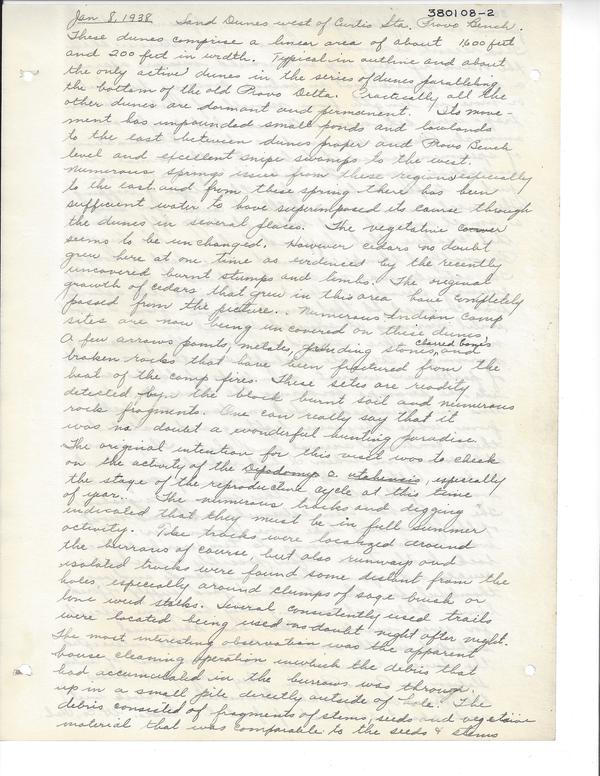 380108-2
Jan 8, 1938 Sand Dunes west of Curtis Sta. Provo Bench.
These dunes comprise a linear area of about 1600 feet
and 200 feet in width. Typical in outline and about
the only active dunes in the series of dunes paralleling
the bottom of the old Provo Delta. Practically all the
other dunes are dormant and permanent. Its move-
ment has impounded small ponds and lowlands
to the east between dunes proper and Provo Bench
level and excellent snipe swamps to the west.
Numerous springs issue from these regions especially
to the east and from these spring there has been
sufficient water to have superimposed its course through
the dunes in several places. The vegetative cover
seems to be unchanged. However cedars no doubt
grew here at one time as evidenced by the recently
uncovered burnt stumps and limbs. The original
growth of cedars that grew in this area have completely
passed from the picture. Numerous Indian camp
sites are now being uncovered on these dunes.
A few arrows points, metates, grinding stones, charred bones and
broken rocks that have been fractured from the
heat of the camp fires. These setes are readily
detected by the black burnt soil and numerous
rock fragments. One can really say that it
was no doubt a wonderful hunting paradise.
The original intention for this visit was to check
on the activity of the Dipodomys o. utahensis, especially
the stage of the reproductive cycle at this time
of year. The numerous tracks and digging
indicated that they must be in full summer
activity. The tracks were localized around
the burrows of course, but also runways and
isolated tracks were found some distant from the
holes, especially around clumps of sage brush or
lone weed stalks. Several consistently used trails
were located being used no doubt night after night.
The most interesting observation was the apparent
house cleaning operation in which the debris that
had accumulated in the burrows was through
up in a small pile directly outside of hole. The
debris consisted of fragments of stems, seeds and vegetative
material that was comparable to the seeds & stems